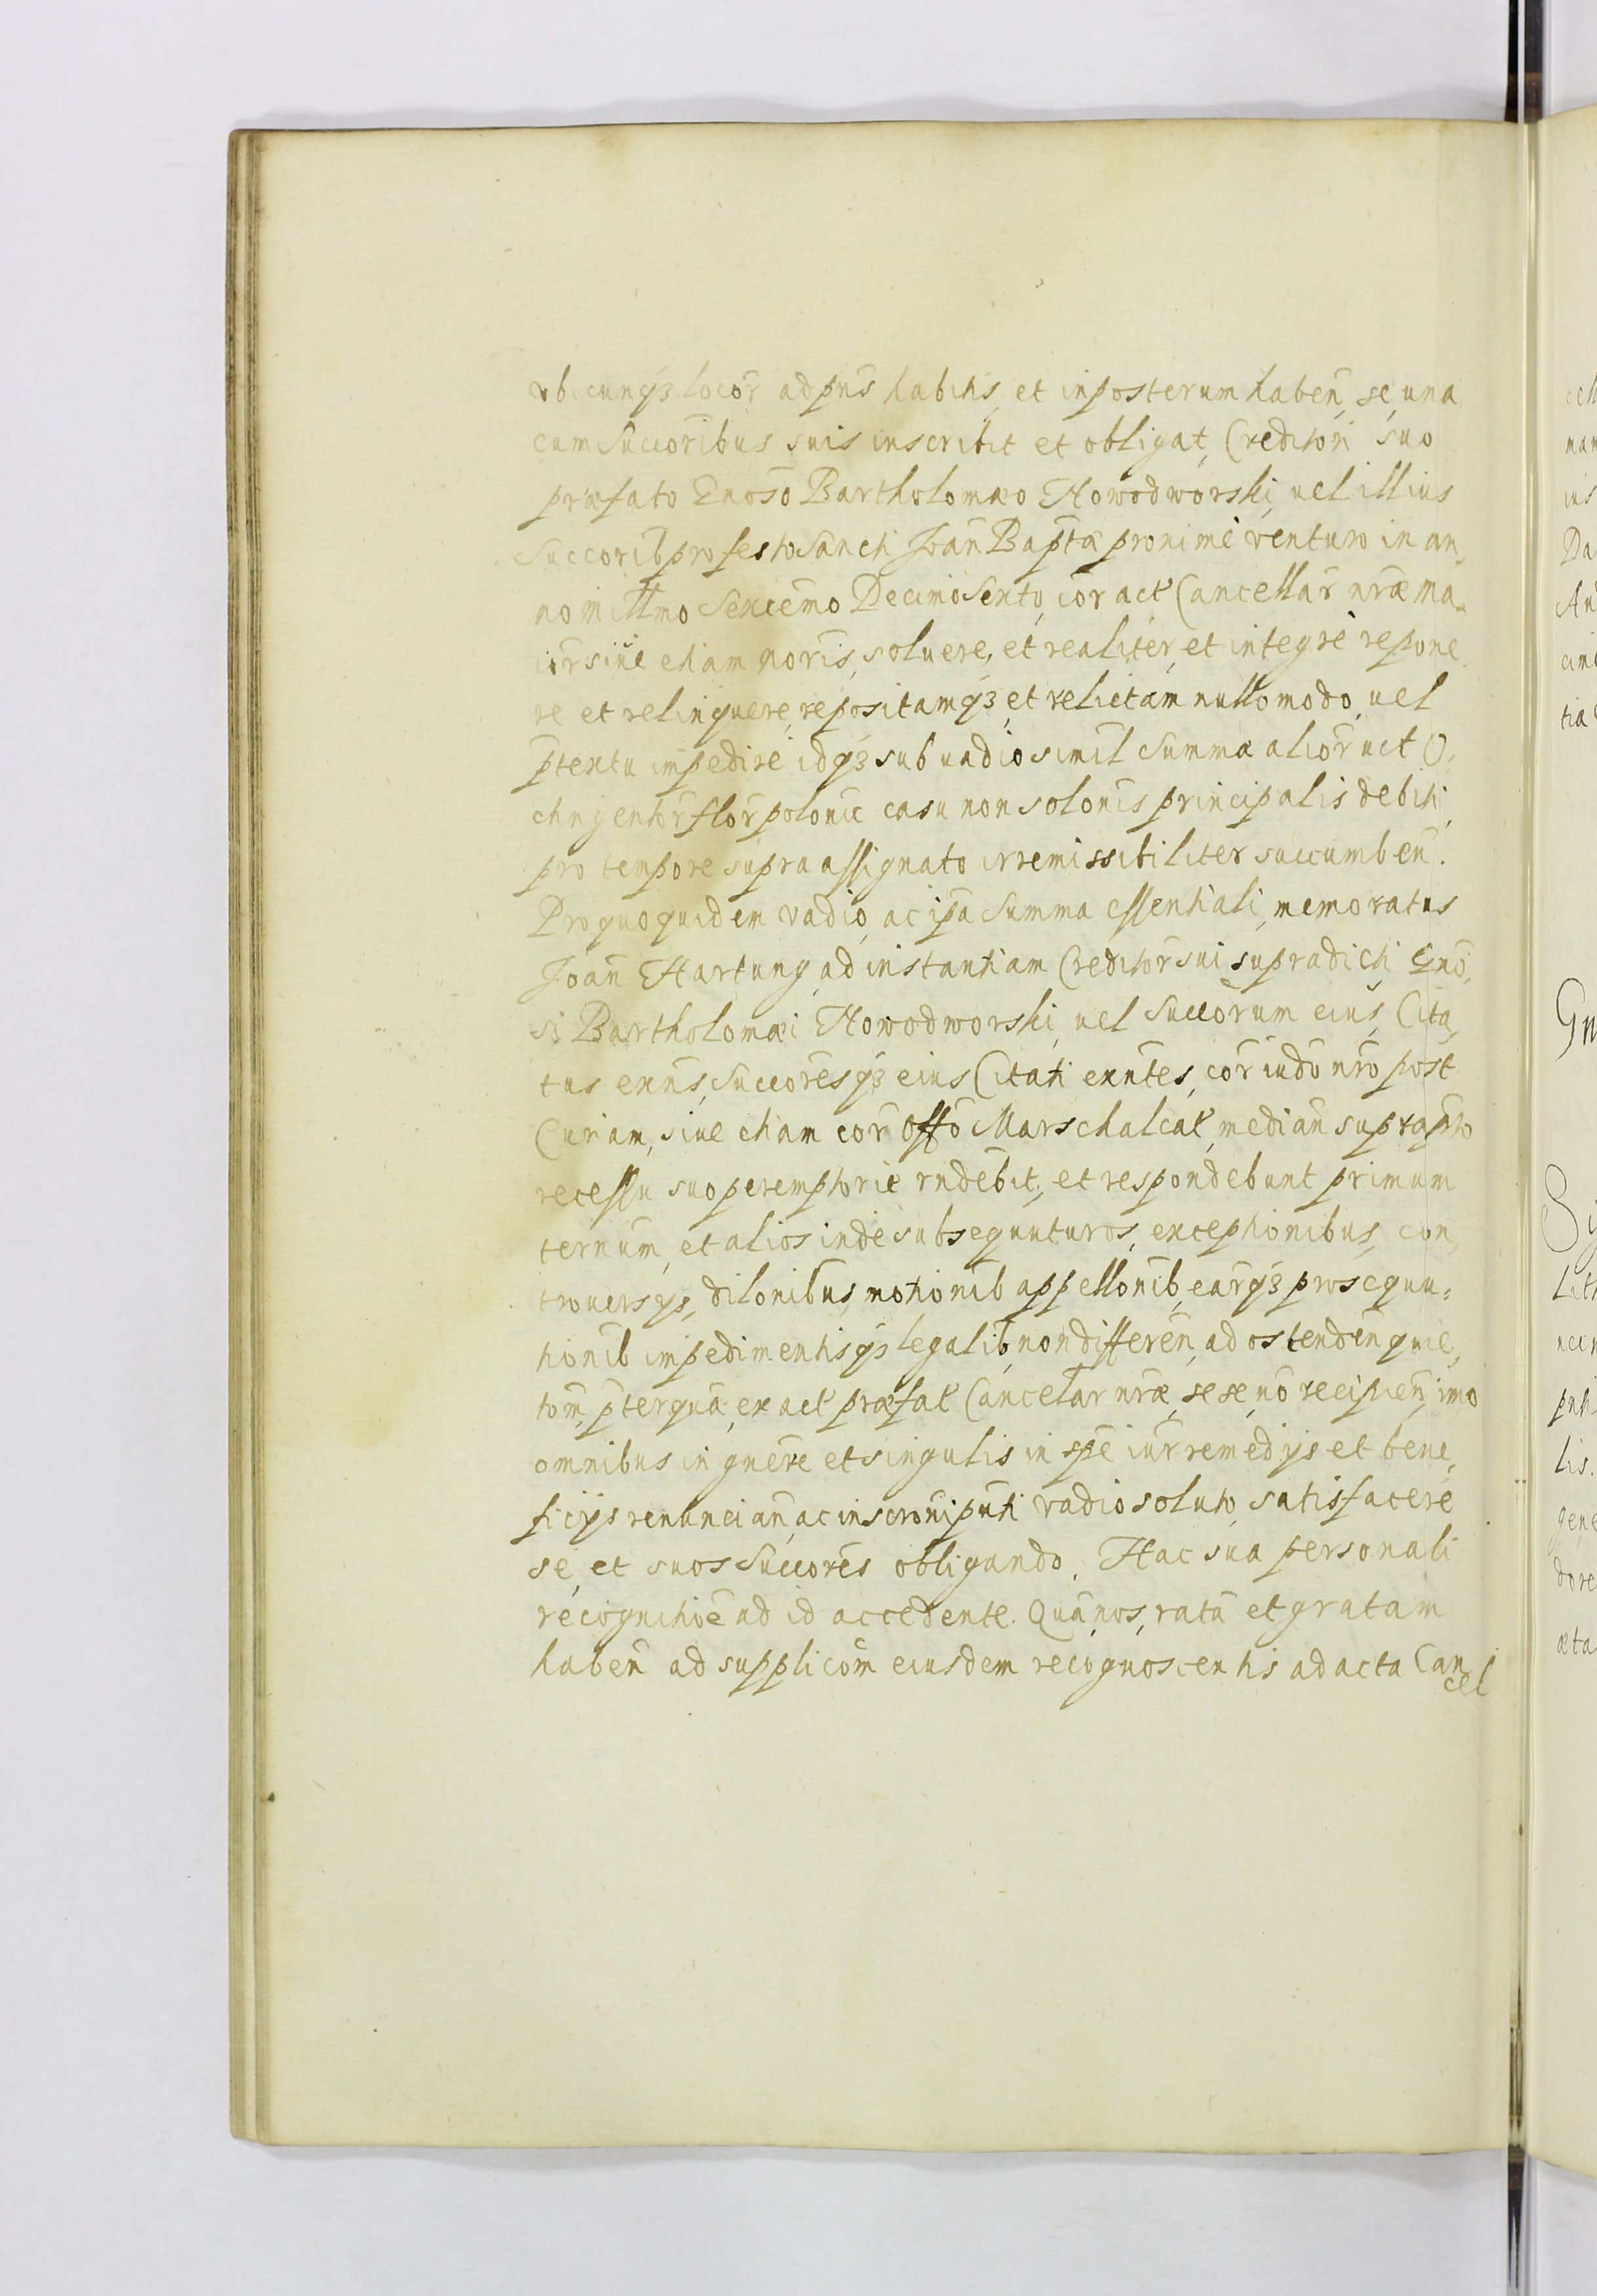 vbicunqȝ locor̄ ad pn̄s habitis, et inposterum haben̄, se, una
cum Succoribus suis inscribit et obligat, Creditori suo
præfato Gnoso Bartholomæo Nowodworski, uel illius
Succorib̄ pro festo Sancti Joan̄ Bap̄tæ proxime venturo in an,
no Millmo Sexcēmo Decimosexto, cor̄ act Cancellar̄ nr̄æ ma,
ior̄ siue etiam noris, soluere, et realiter, et integrè repone
re et relinquere, repositamqȝ, et relictam nullo modo, uel
p̄textu impedire idqȝ sub uadio simil Summæ alior̄ uct O,
ctngentor̄ flor̄ polonic casu non solonis principalis debiti,
pro tempore supra assignato irremissibiliter succumben̄.
Pro quo quidem vadio, ac ip̄a Summa essentiali, memoratus
Joan̄ Hartung, ad instantiam Creditor̄ sui supradicti Gno,
si Bartholomæi Nowodworski, uel Succorum eius, Cita,
tus exn̄s, Succoresqȝ eius Citati exn̄tes, cor̄ iudō nr̄o post
Curiam, siue etiam cor̄ Offō Marschalcal, median̄ suprap̄to
recessu suo peremptorie rn̄debit, et respondebunt primum
ternum, et alios inde subsequuturos, exceptionibus, con,
trouersys, dilonibus motionib̄ appellonib̄, earqȝ prosequu,
tionib̄ impedimentisqȝ legalib̄, non differen̄, ad ostenden̄ quie,
tom̄, p̄terquā, ex act præfat Cancellar̄ nr̄æ, sese, nō recipien̄, imo
omnibus in gn̄ere et singulis in sp̄e iur̄ remedys et bene,
ficiys renuncian̄, ac inscroni pn̄ti vadio soluto, satisfacere
se, et suos Succores obligando. Hac sua personali
recognitioē ad id accedente. Quā nos, ratā et gratam
haben̄ ad supplicom̄ eiusdem recognoscentis ad acta Can
cel